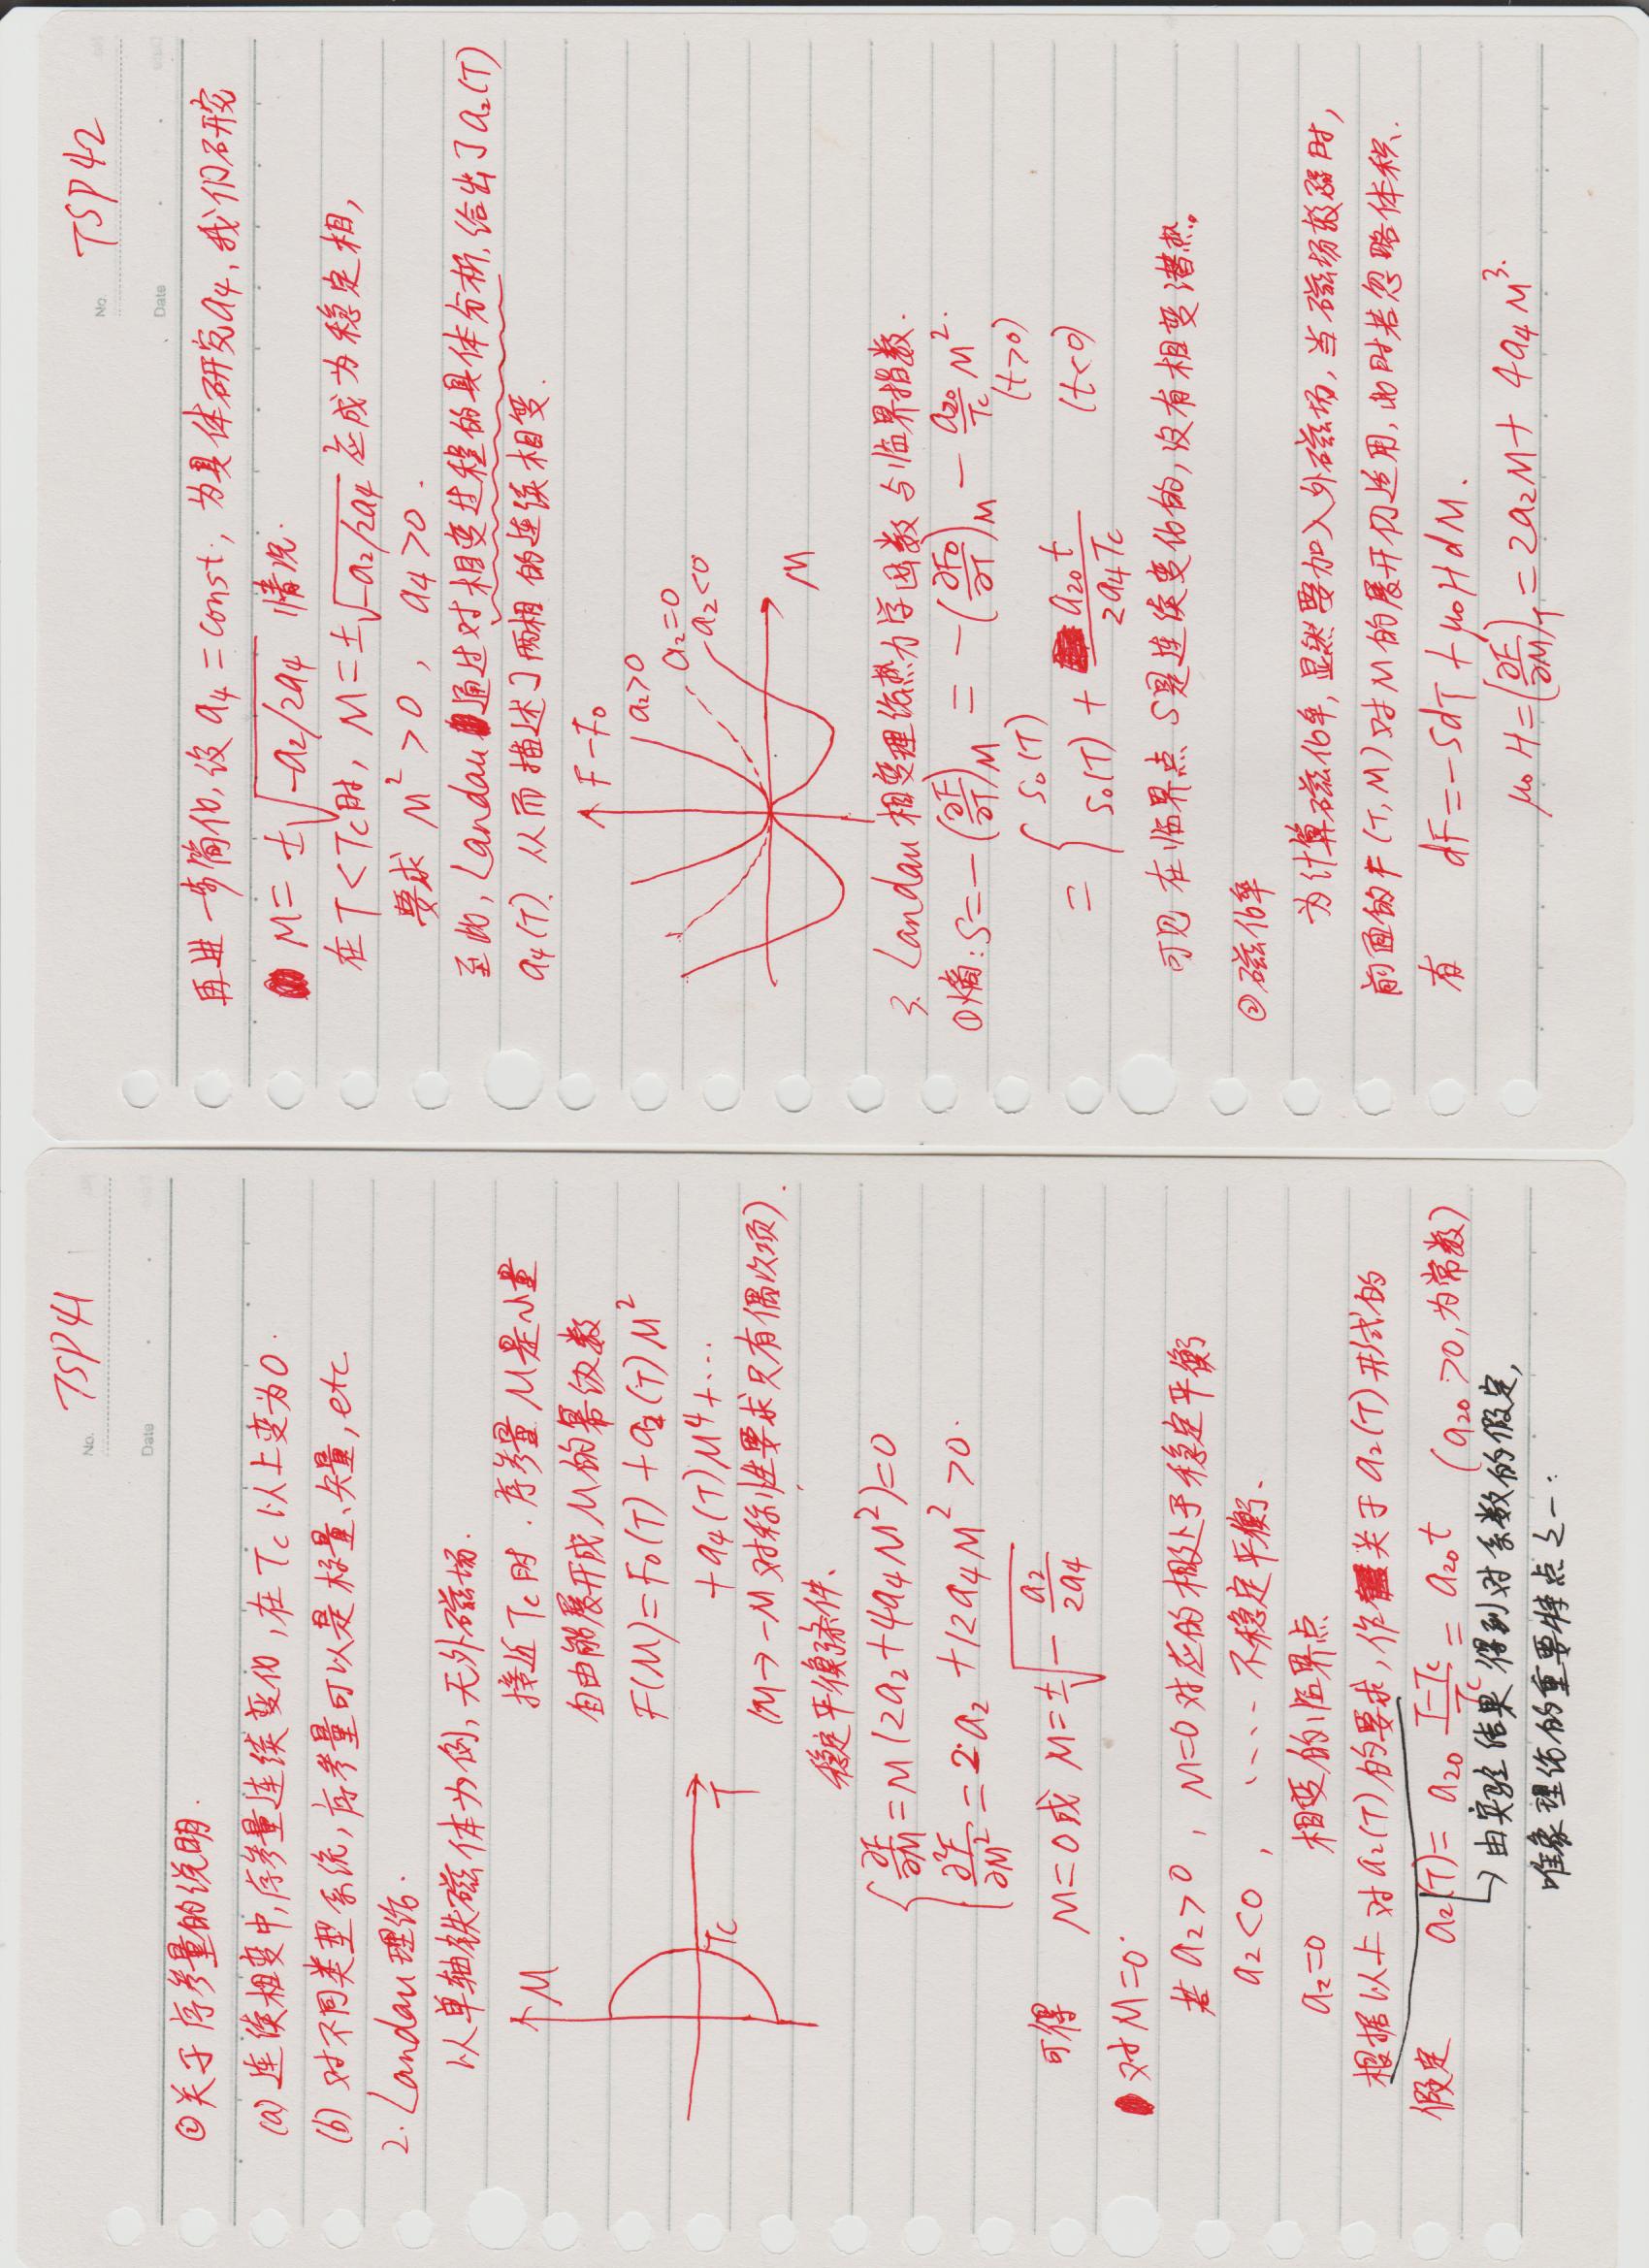 No. TSP41
Date
②关于序参量的说明.
(a) 连续相变中,序参量连续变化,在Tc以上变为0.
(b) 对不同类型系统,序参量可以是标量、矢量,etc
2. Landau理论.
以单轴铁磁体为例,无外磁场.
M
Tc
T
接近Tc时.序参量M是小量
自由能展开成M的幂级数
F(M)=F₀(T)+a₂(T)M²
+a₄(T)M⁴+⋯
(M→-M 对称性要求只有偶次项).
稳定平衡条件、
{ ∂F/∂M = M(2a₂+4a₄M²)=0
∂²F/∂M² = 2a₂+12a₄M²>0.
可得 M=0或 M=±√(-a₂/2a₄)
对M=0.
若a₂>0, M=0对应的相处于稳定平衡
a₂<0, ‥‥ 不稳定平衡.
a₂=0 相变的临界点
根据以上对a₂(T)的要求,作关于a₂(T)形式的
假定 a₂(T)= a₂₀ (T-Tc)/Tc = a₂₀t (a₂₀>0,为常数)
↳由实验结果得到对系数的假定,
唯象理论的重要特点之一.
No. TSP42
Date
再进一步简化,设a₄=const.,为具体研究a₄,我们研究
M=±√(-a₂/2a₄) 情况.
在T<Tc时, M=±√(-a₂/2a₄) 应成为稳定相,
要求 M²>0, a₄>0.
至此,Landau通过对相变过程的具体分析,给出了a₂(T)
a₄(T).从而描述了两相的连续相变.
F-F₀
a₂>0
a₂=0
a₂<0
M
3. Landau相变理论热力学函数与临界指数.
①熵: S=-(∂F/∂T)_M = -(∂F₀/∂T)_M - (a₂₀/Tc) M².
= { S₀(T) (t>0)
S₀(T) + a₂₀t/(2a₄Tc) (t<0)
可见在临界点S是连续变化的,没有相变潜热。
②磁化率
为计算磁化率,显然要加入外磁场,当磁场较弱时,
前面的F(T,M)对M的展开仍适用,此时若忽略体积.
有 dF=-SdT+μ₀HdM.
μ₀H=(∂F/∂M)_T=2a₂M+4a₄M³.